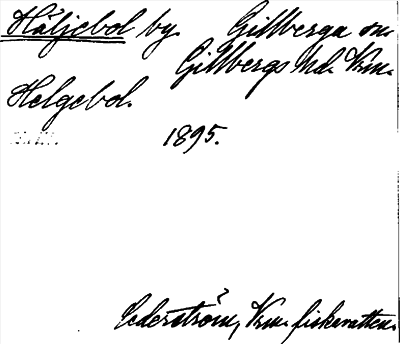 Häljebol by. Gillberga sn.
Gillbergs hd. Vrm.
Helgebol.
1895.
Cederström, Vrm. fiskevatten.